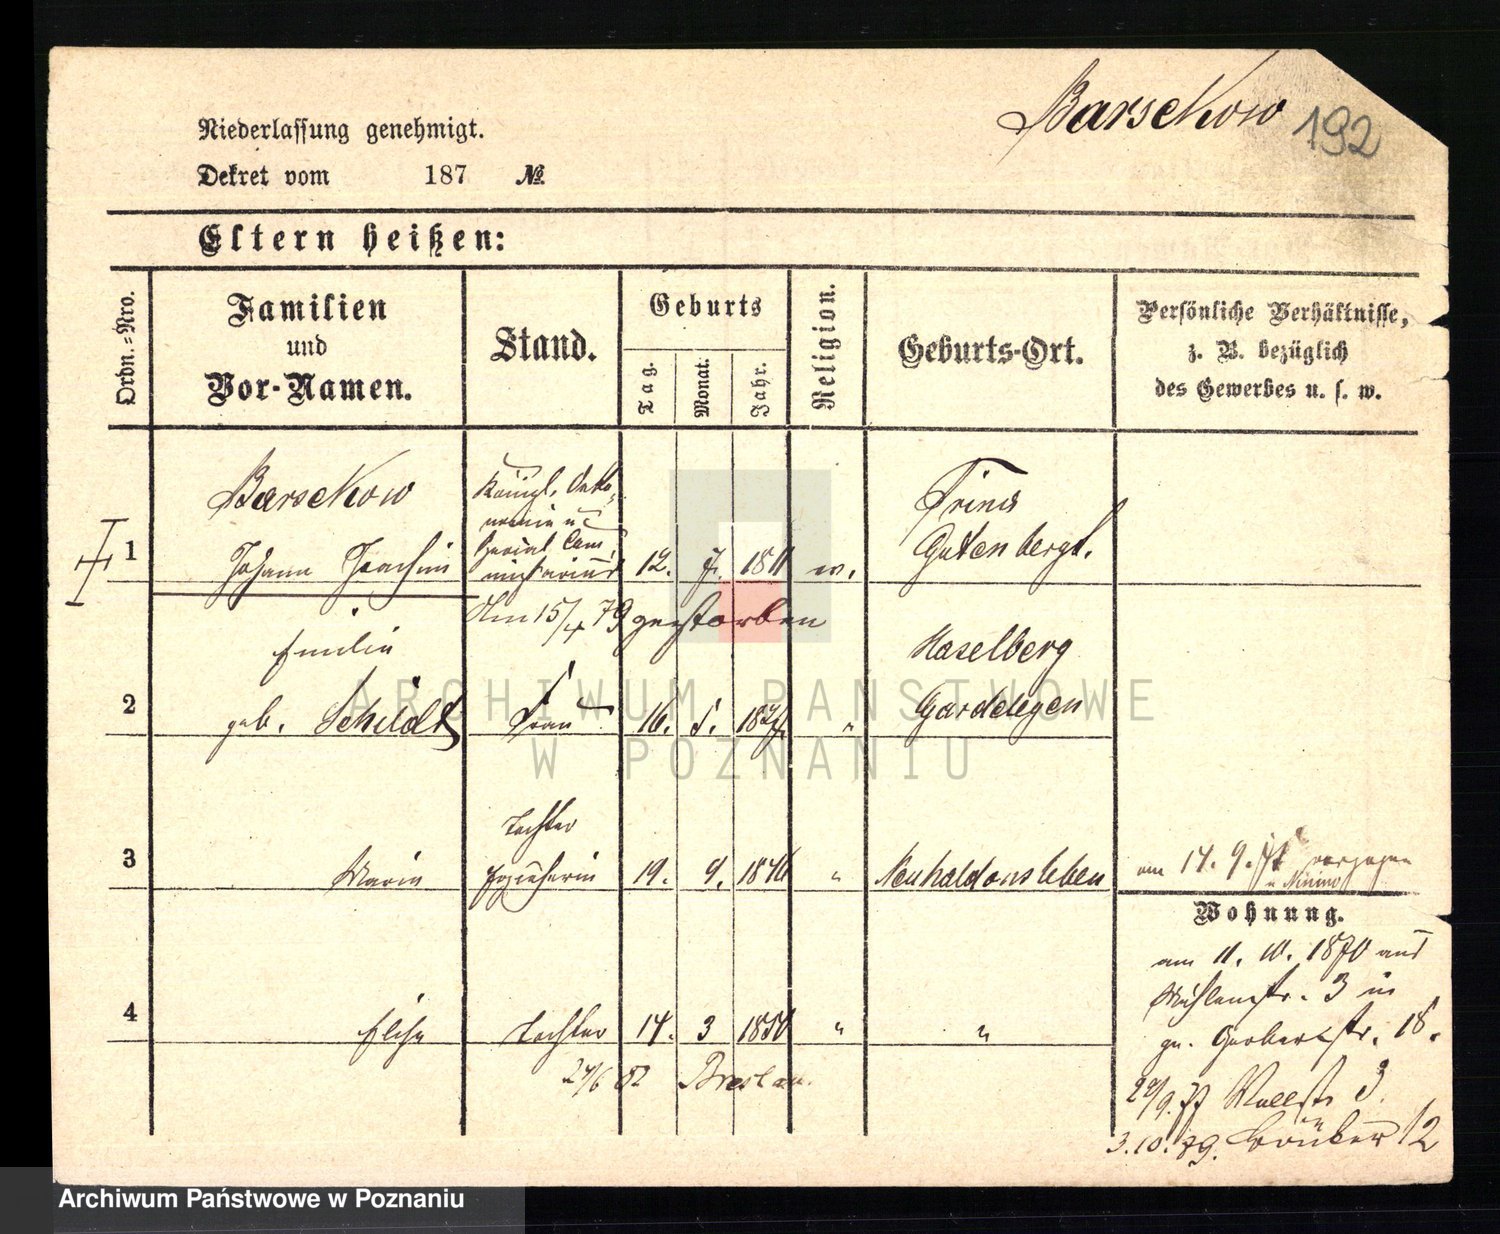 Barsekow 192
Niederlassung genehmigt.
Dekret vom 187 №
Eltern heißen:
Ordn.-Nro.
Familien
und
Vor-Namen.
Stand.
Geburts
Tag.
Monat.
Jahr.
Religion.
Geburts-Ort.
Persönliche Verhältnisse,
z. B. bezüglich
des Gewerbes u. s. w.
1
Barsekow
Johann Joachim
Königl. Oeko-
nomie u
Spezial Com-
missarius
12. 7. 1811
ev.
Gutenbergst.
Am 15/4 79 gestorben
2
Emilie
geb. Schildt
Frau
16. 5.
"
Haselberg
Gardelegen
3
Marie
Tochter
Erzieherin
19. 9. 1846
"
Neuhaldensleben
am 14. 9. verzogen
4
Elise
Tochter
14. 3 1850
"
"
24/6 82 Breslau.
Wohnung.
am 11. 10. 1870 aus
Mühlenstr. 3 in
gr. Gerberstr. 18.
29/9. 77 Wallstr 3.
3.10.89. 12
ARCHIWUM PAŃSTWOWE
W POZNANIU
Archiwum Państwowe w Poznaniu